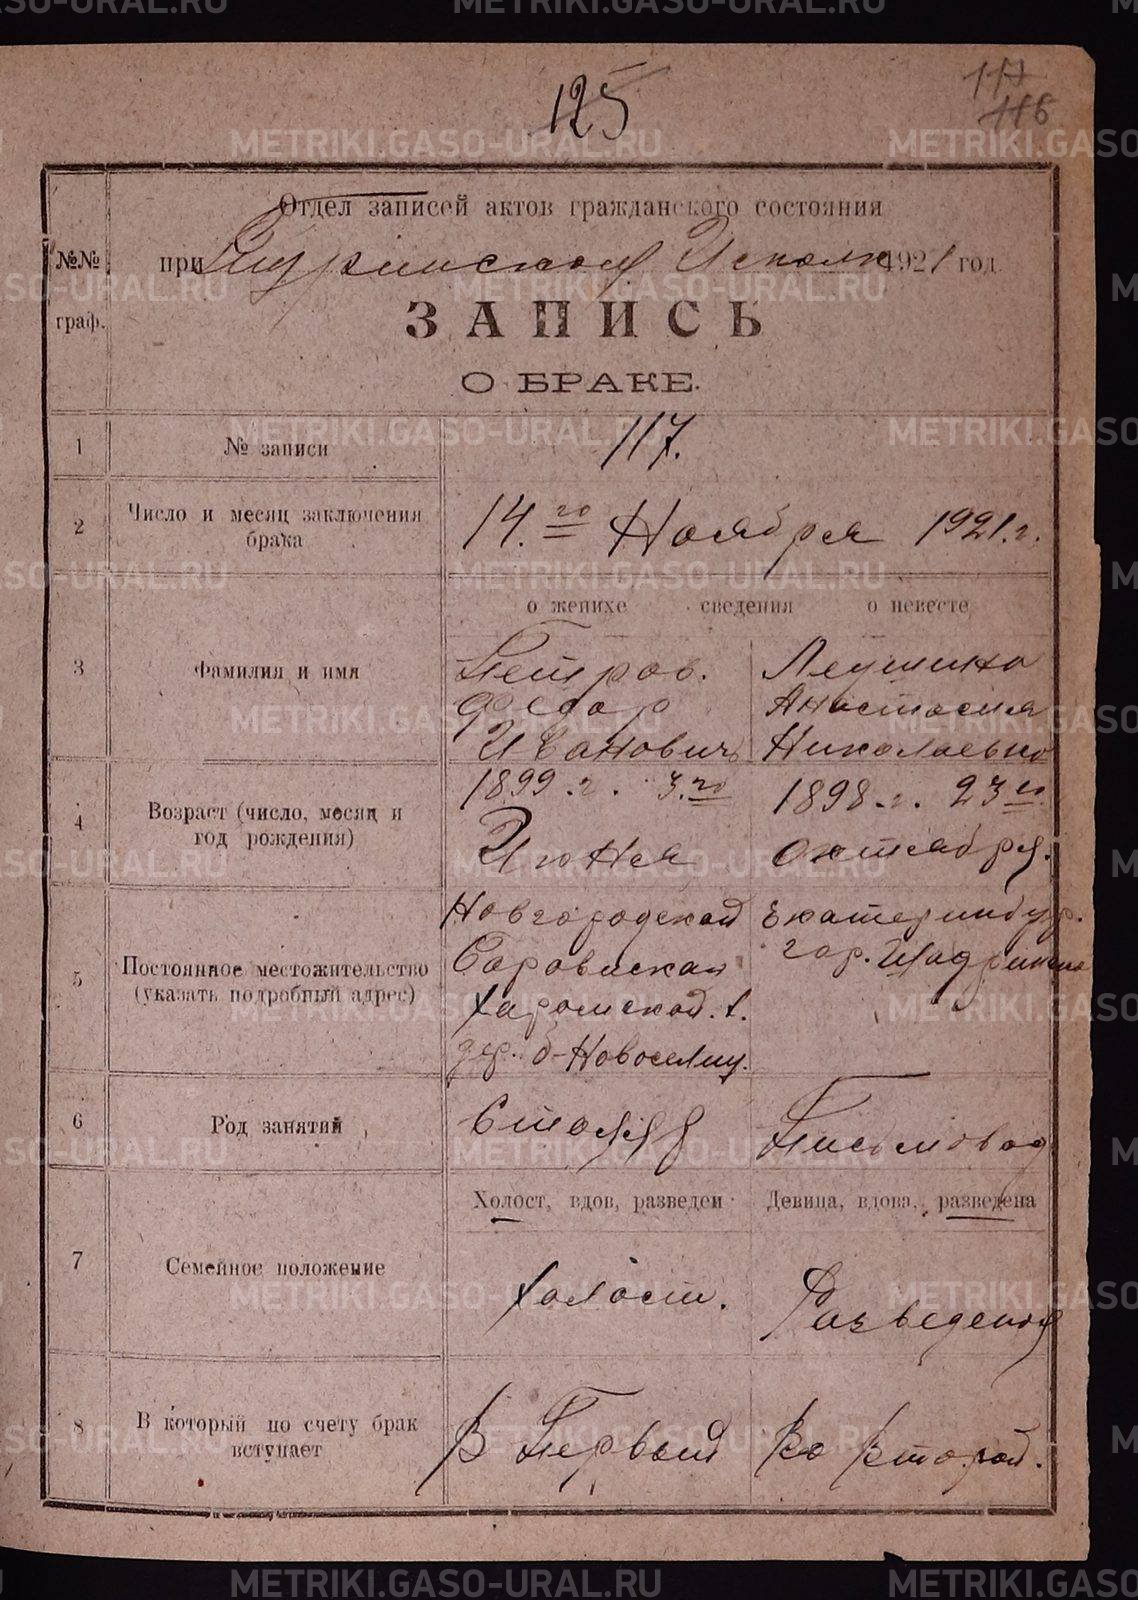 125
117
116
Отдел записей актов гражданского состояния
при Туринском Исполк 1921 год.
№№
граф.
ЗАПИСЬ
О БРАКЕ.
1 № записи 117.
2 Число и месяц заключения
брака
14.го Ноября 1921.г.
о женихе сведения о невесте
3 Фамилия и имя
Петров. Леушина
Федор Анастасия
Иванович Николаевна
4 Возраст (число, месяц и
год рождения)
1899.г. 3.го 1898.г. 23го
Июня октября.
5 Постоянное местожительство
(указать подробный адрес)
Новгородской Екатеринбур.
гор. Шадринска
.в.
дер. Б-Новоселиц.
6 Род занятий
Столяр Письмовод
Холост, вдов, разведен Девица, вдова, разведена
7 Семейное положение
Холост. Разведеная
8 В который по счету брак
вступает
В Первый Во Второй.
METRIKI.GASO-URAL.RU